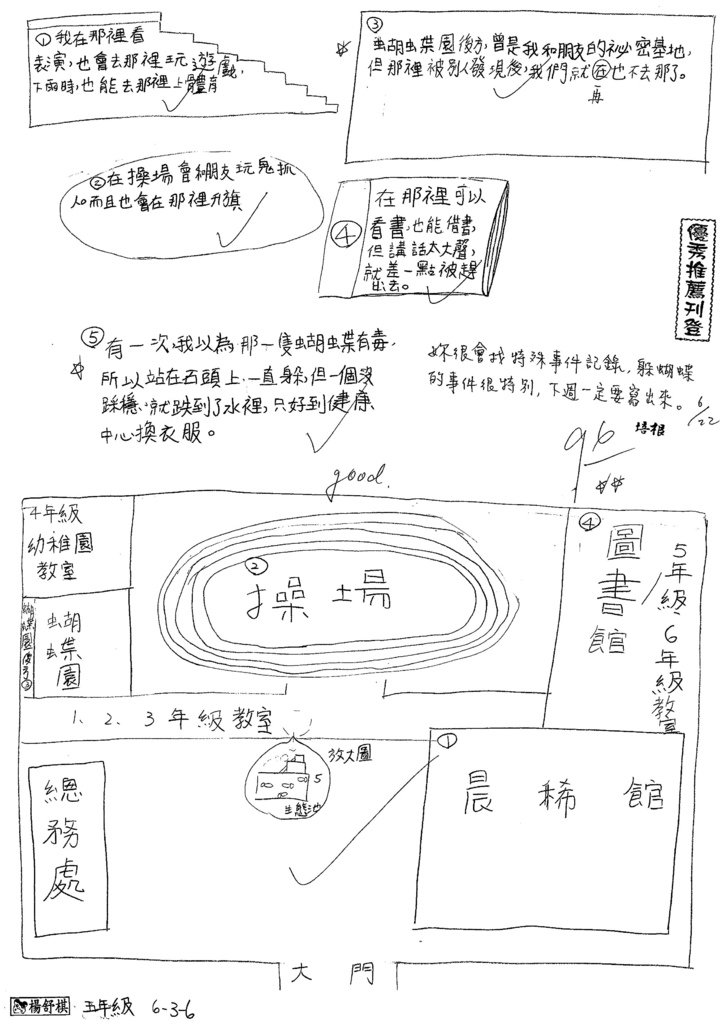 ①我在那裡看
表演，也會去那裡玩遊戲，
下雨時，也能去那裡上體育
③
蝴蝶園後方，曾是我和朋友的祕密基地，
但那裡被別人發現後，我們就在也不去那了。
再
②在操場會和朋友玩鬼抓
人而且也會在那裡升旗
④
在那裡可以
看書，也能借書，
但講話太大聲，
就差一點被趕
出去。
優秀推薦刊登
⑤有一次，我以為那一隻蝴蝶有毒，
所以站在石頭上一直躲，但一個沒
踩穩，就跌到了水裡，只好到健康
中心換衣服。
妳很會找特殊事件記錄，躲蝴蝶
的事件很特別，下週一定要寫出來。6/22
培根
96
good.
4年級
幼稚園
教室
②
操場
④
圖書館
5年級、6年級教室
蝴蝶園後方③
蝴蝶園
1、2、3年級教室
放大圖
5
生態池
①
晨稀館
總務處
大門
楊舒棋 五年級 6-3-6